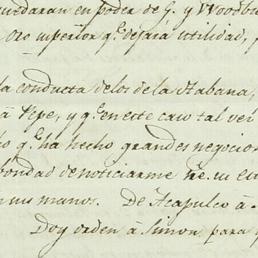 quedaran en poder de G. y Woodbu
Oro inferior q.e dejará utilidad,
la conducta de los de la Habana,
á Pepe, y q.e en este caso tal vez
q.e ha hecho grandes negocios
bondad de noticiarme
en su mano. De Acapulco á
Doy orden á Simon para q